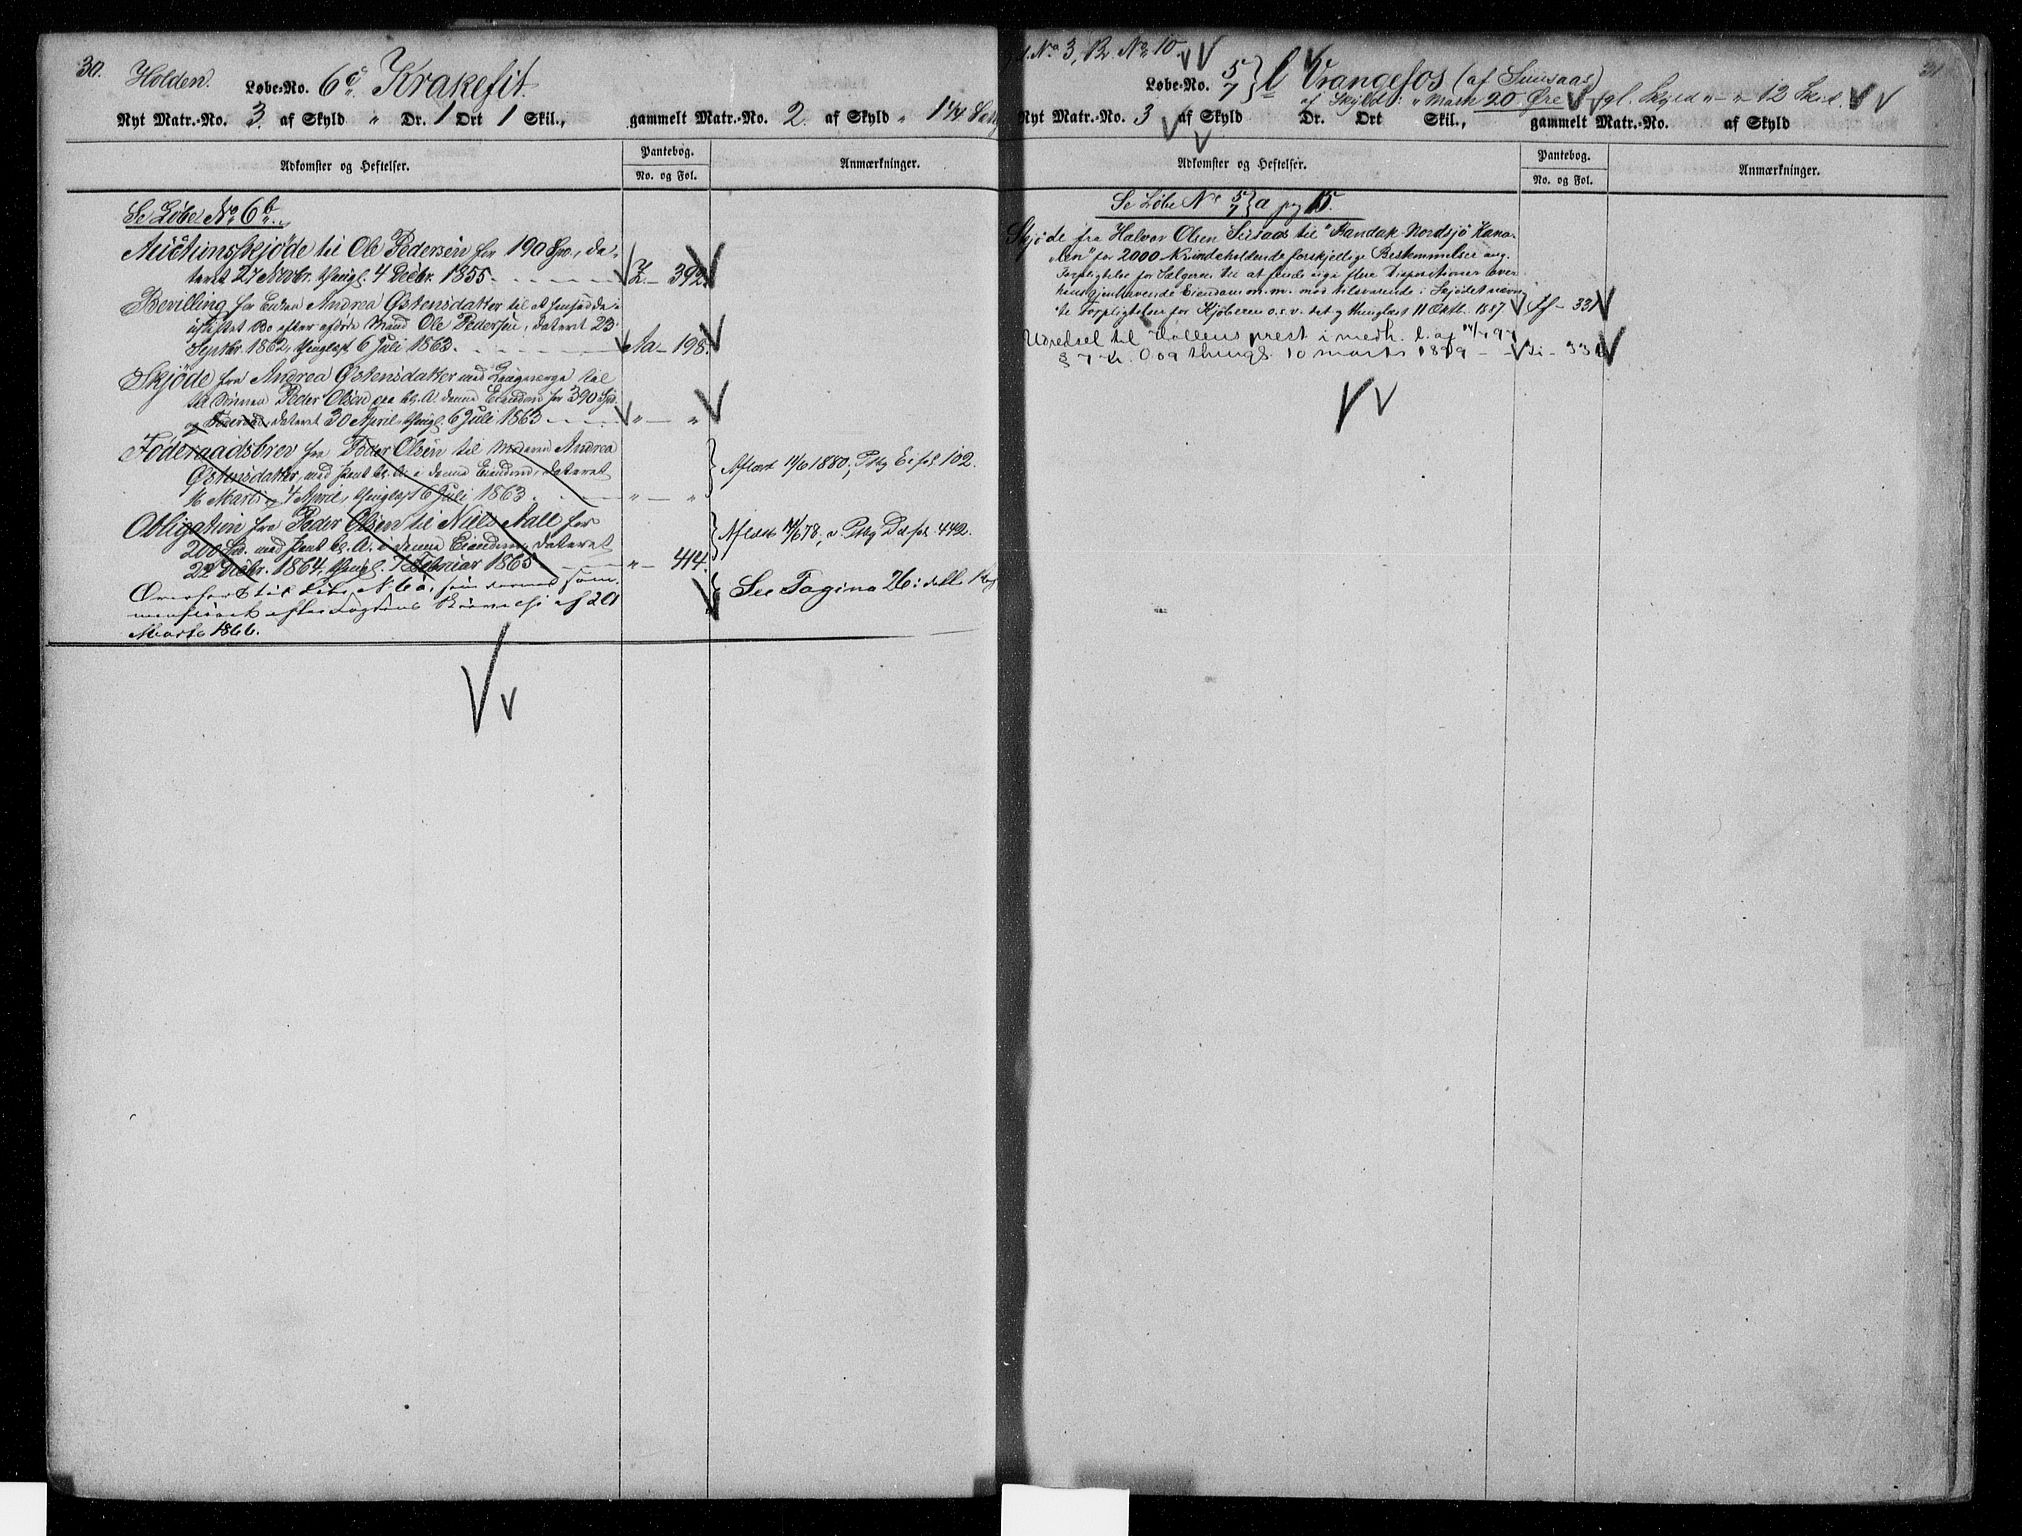 30.
Holden. Løbe-No. 6c Krakefit.
Nyt Matr.-No. 3. af Skyld " Dr. 1 Ort 1 Skil., gammelt Matr.-No. 2. af Skyld " 1 1/4
Adkomster og Heftelser.
Pantebog.
No. og Fol.
Anmærkninger.
Se Løbe No 6b.
Auctionsskjöde til Ole Pedersen for 190 Spd., da-
teret 27 Novbr. thingl. 4 Decbr. 1855. Z - 392.
Bevilling for Enken Andrea Østensdatter til at hensidde i
uskiftet Bo efter afdøde Mand Ole Pedersen, dateret 23
Septbr. 1862, thinglæst 6 Juli 1863. Aa - 198.
Skjöde fra Andrea Østensdatter med Laugværge til
til Sönnen Peder Olsen paa bl. A. denne Eiendom for 390 Spd.
og Föderaad, dateret 30 April, thingl. 6 Juli 1863. " - "
Föderaadsbrev fra Peder Olsen til Moderen Andrea
Østensdatter, med Pant bl. A. i denne Eiendom, dateret
16 Marts, 7 April, thinglæst 6 Juli 1863. " - "
Aflæst 11/6 1880, Ptbg E. fol 102.
Obligation fra Peder Olsen til Niels Aall for
200 Spd. med Pant bl. A. i denne Eiendom, dateret
22 Decbr. 1864, thingl. 7 Februar 1865 " - 414.
Aflæst 14/6 78, v. Ptbg D. fol. 442.
Overført til Löbe N. 6a, som dermed sam-
menföiet efter Fogdens Skrivelse af 20
Marts 1866.
See Pagina 26 i dette
31
No 3, Br. No 10.
Løbe-No. 5/7 } l Vrangefos (af Suusaas)
af Skyld: " Mark 20 Øre gl. Skyld " - " 12 Skil.
Nyt Matr.-No. 3 af Skyld Dr. Ort Skil., gammelt Matr.-No. af Skyld
Adkomster og Heftelser.
Pantebog.
No. og Fol.
Anmærkninger.
Se Løbe No 5/7 } a pag 15.
Skjøde fra Halvor Olsen til "Bandak Nordsjö Kana-
len" for 2000 Kr indeholdende forskjellige Bestemmelser ang.
Forpligtelse for Sælgeren til at finde sig i flere Dispositioner over
hans gjenhavende Eiendom m.m. med tilsvarende i Skjødet nævn-
te Forpligtelser for Kjøberen o.s.v. dat. og thinglæst 11 Oktb. 1887 - 331
Udredsel til Hollens prest i medh. l. af 14/7 94
§ 7 Kr. 0.09 thingl. 10 marts 1899 - - 331